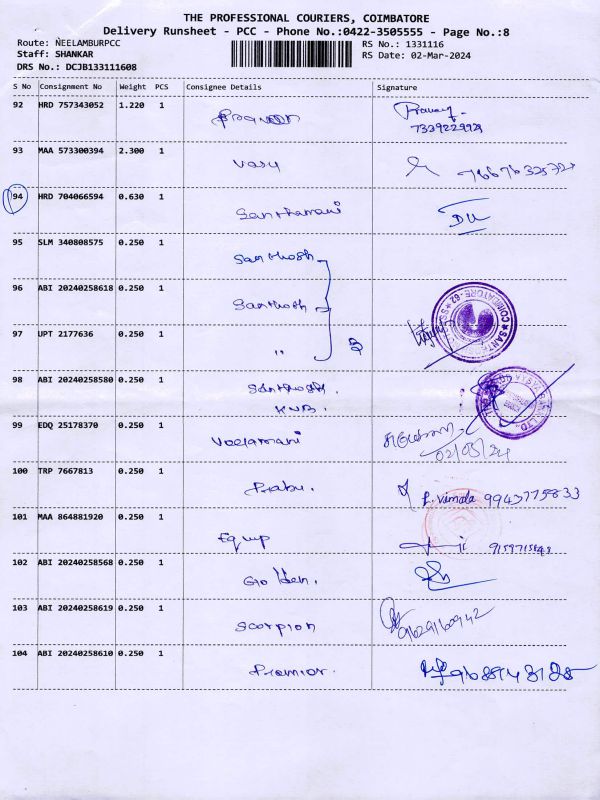 THE PROFESSIONAL COURIERS, COIMBATORE
Delivery Runsheet - PCC - Phone No.:0422-3505555 - Page No.:8
Route: NEELAMBURPCC
RS No.: 1331116
Staff: SHANKAR
RS Date: 02-Mar-2024
DRS No.: DCJB133111608
S No Consignment No Weight PCS Consignee Details Signature
92 HRD 757343052 1.220 1
93 MAA 573300394 2.300 1 Vasu
94 HRD 704066594 0.630 1 Santhamani
95 SLM 340808575 0.250 1 Santhosh
96 ABI 20240258618 0.250 1 Santhosh
97 UPT 2177636 0.250 1 " 3
98 ABI 20240258580 0.250 1 Santhosh.
99 EDQ 25178370 0.250 1 Veelamani
02/03/24
100 TRP 7667813 0.250 1 Prabu. P. Vimala 9943775833
101 MAA 864881920 0.250 1 Equip
102 ABI 20240258568 0.250 1 Golden.
103 ABI 20240258619 0.250 1 Scorpion 9629160942
104 ABI 20240258610 0.250 1 Premier.